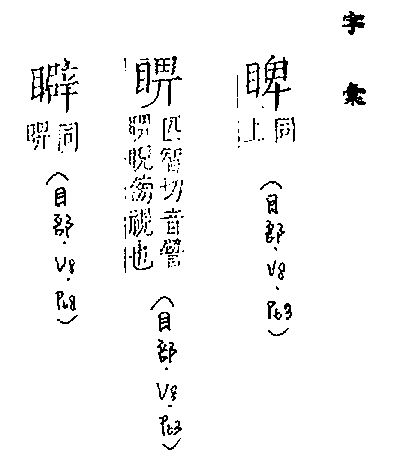 字彙
睥
同上
(目部.V8.P63)
睤
匹智切音譬
睤睨傍視也
(目部.V8.P63)
䁹
同睤
(目部.V8.P68)